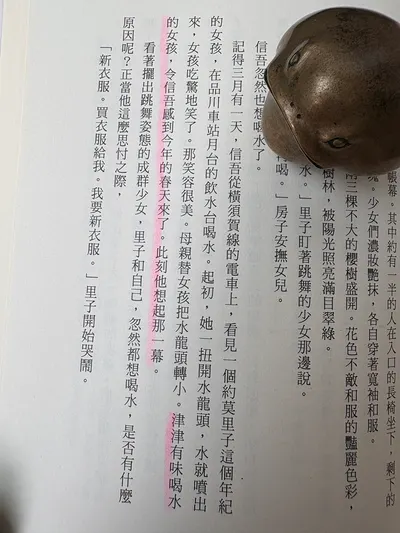 帳幕。其中約有一半的人在入口的長椅坐下，剩下的
。少女們濃妝艷抹，各自穿著寬袖和服。
三棵不大的櫻樹盛開。花色不敵和服的豔麗色彩，
樹林，被陽光照亮滿目翠綠。
水。」里子盯著跳舞的少女那邊說。
喝。」房子安撫女兒。
信吾忽然也想喝水了。
記得三月有一天，信吾從橫須賀線的電車上，看見一個約莫里子這個年紀
的女孩，在品川車站月台的飲水台喝水。起初，她一扭開水龍頭，水就噴出
來，女孩吃驚地笑了。那笑容很美。母親替女孩把水龍頭轉小。津津有味喝水
的女孩，令信吾感到今年的春天來了。此刻他想起那一幕。
看著擺出跳舞姿態的成群少女，里子和自己，忽然都想喝水，是否有什麼
原因呢？正當他這麼思忖之際，
「新衣服。買衣服給我。我要新衣服。」里子開始哭鬧。